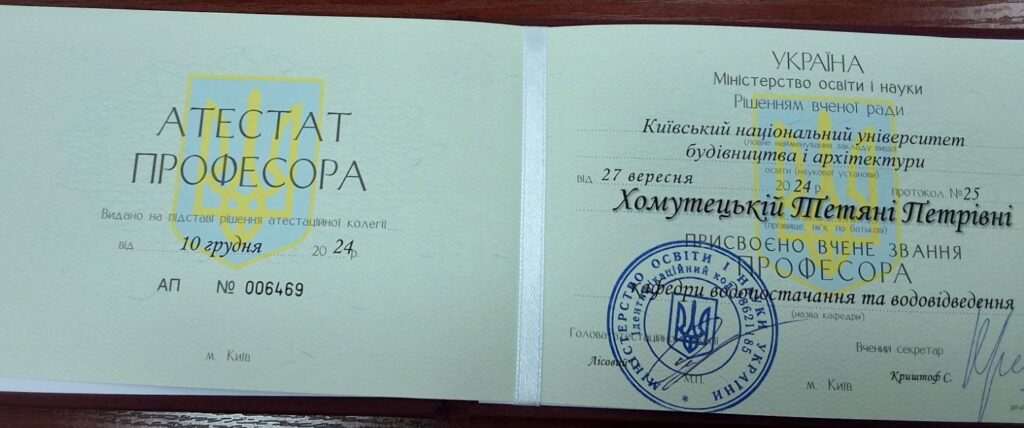 АТЕСТАТ
ПРОФЕСОРА
Видано на підставі рішення атестаційної колегії
від 10 грудня 2024р.
АП № 006469
м. Київ
УКРАЇНА
Міністерство освіти і науки
Рішенням вченої ради
Київський національний університет
(повне найменування закладу вищої
будівництва і архітектури
освіти (наукової установи)
від 27 вересня 2024 р. протокол №25
Хомутецькій Тетяні Петрівні
(прізвище, ім'я, по батькові)
ПРИСВОЄНО ВЧЕНЕ ЗВАННЯ
ПРОФЕСОРА
Кафедри водопостачання та водовідведення
(назва кафедри)
Голова атестаційної колегії
Лісовий
М.П.
Вчений секретар
Криштоф С.
м. Київ
МІНІСТЕРСТВО ОСВІТИ І НАУКИ УКРАЇНИ
Ідентифікаційний код 38621185